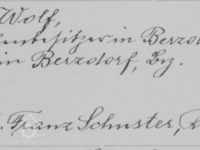 Wolf,
besitzer in Berzd
in Berzdorf, Bez.
Franz Schuster,